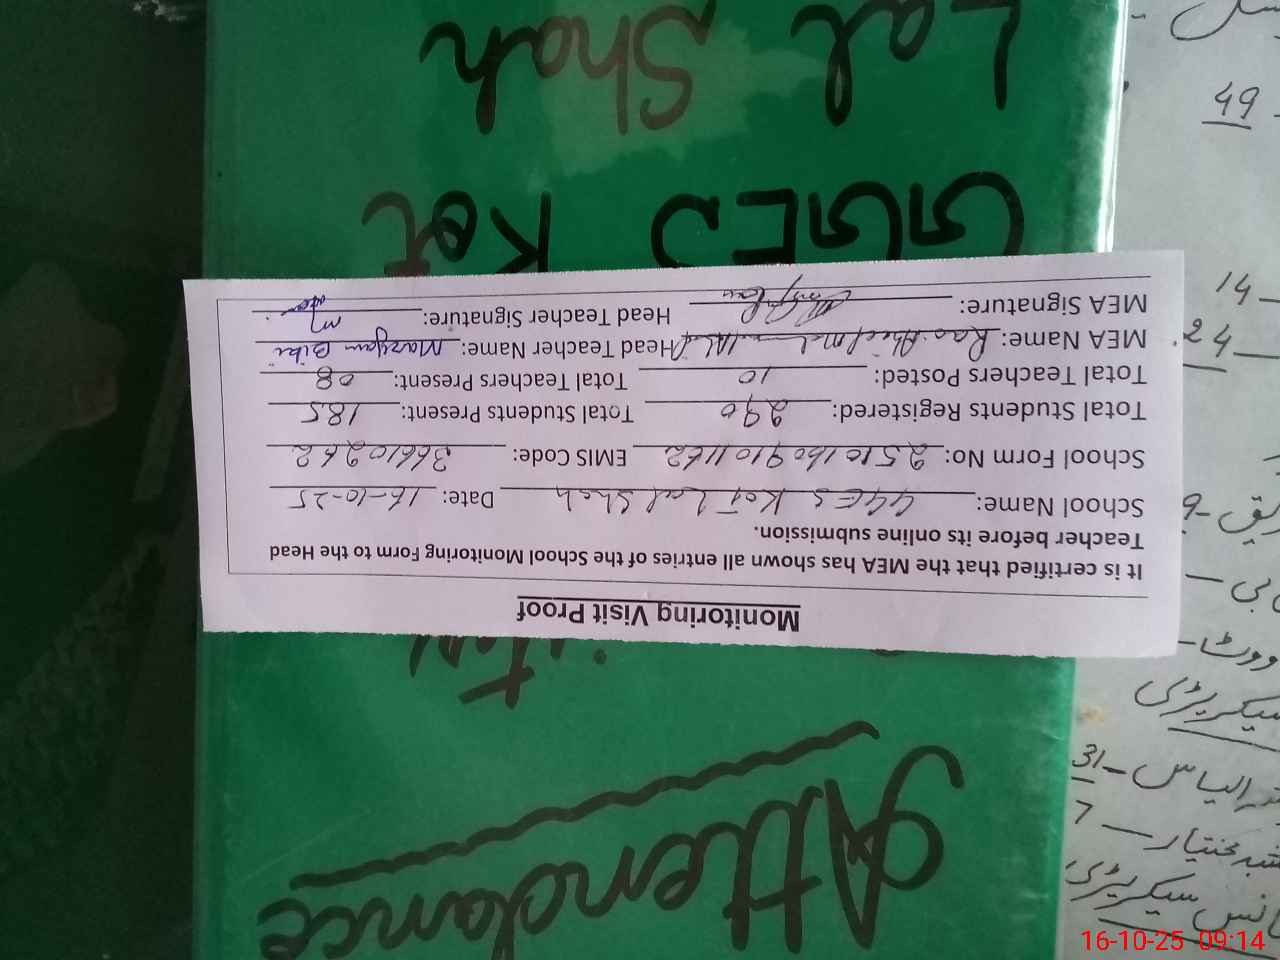 Attendance
GGES Kot
Lal Shah
Monitoring Visit Proof
It is certified that the MEA has shown all entries of the School Monitoring Form to the Head
Teacher before its online submission.
School Name: GGES Kot Lal Shah Date: 16-10-25
School Form No: EMIS Code: 36610262
Total Students Registered: 290 Total Students Present: 185
Total Teachers Posted: 10 Total Teachers Present: 08
MEA Name: Rao Head Teacher Name: Maryam Bibi
MEA Signature: Head Teacher Signature:
49
14
24
سیکریٹری
الیاس - 31
7
سیکریٹری
16-10-25 09:14